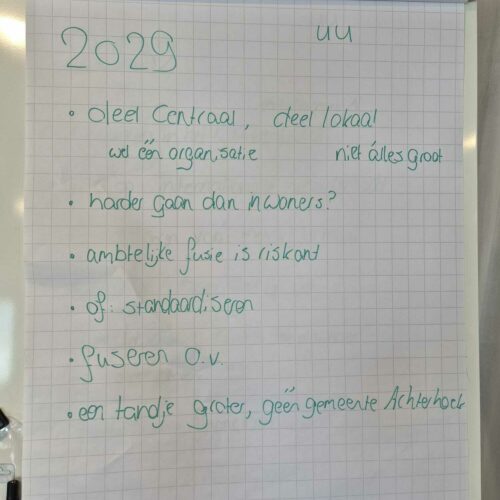 2029
UU
• deel centraal, deel lokaal
wel één organisatie niet álles groot
• harder gaan dan inwoners?
• ambtelijke fusie is riskant
• of: standaardiseren
• fuseren o.v.
• een tandje groter, géén gemeente Achterhoek